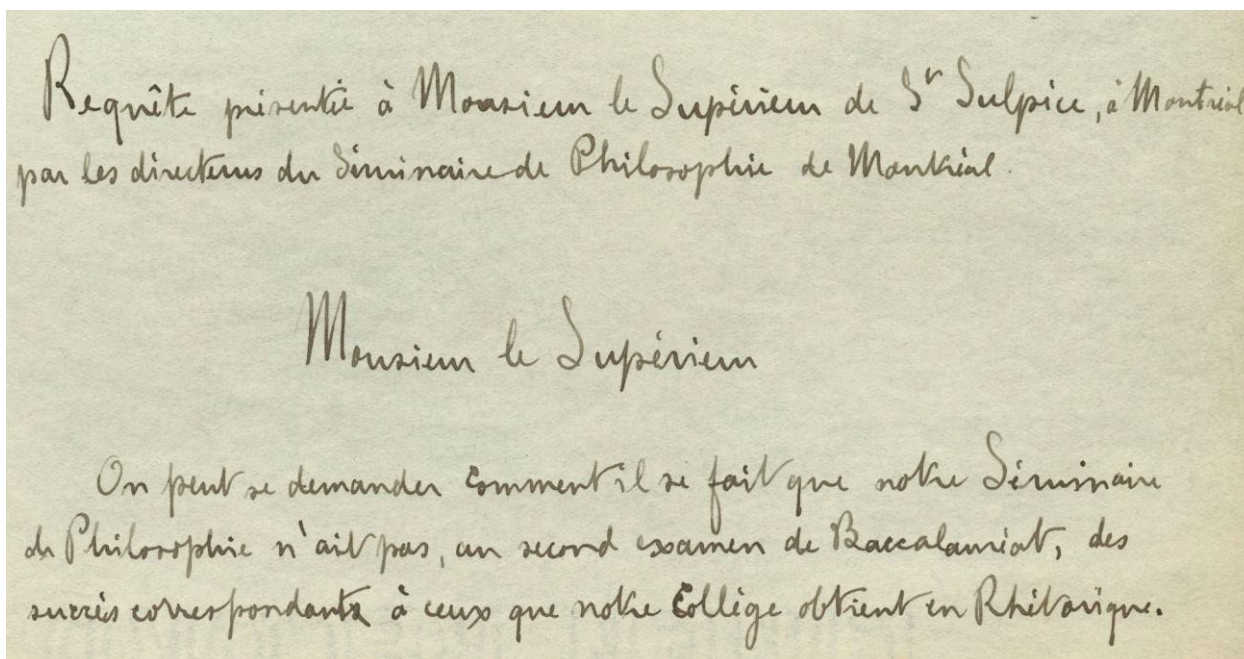 Requête présentée à Monsieur le Supérieur de St Sulpice, à Montréal
par les directeurs du Séminaire de Philosophie de Montréal.
Monsieur le Supérieur
On peut se demander comment il se fait que notre Séminaire
de Philosophie n'ait pas, au second examen de Baccalauréat, des
succès correspondants à ceux que notre Collège obtient en Rhétorique.